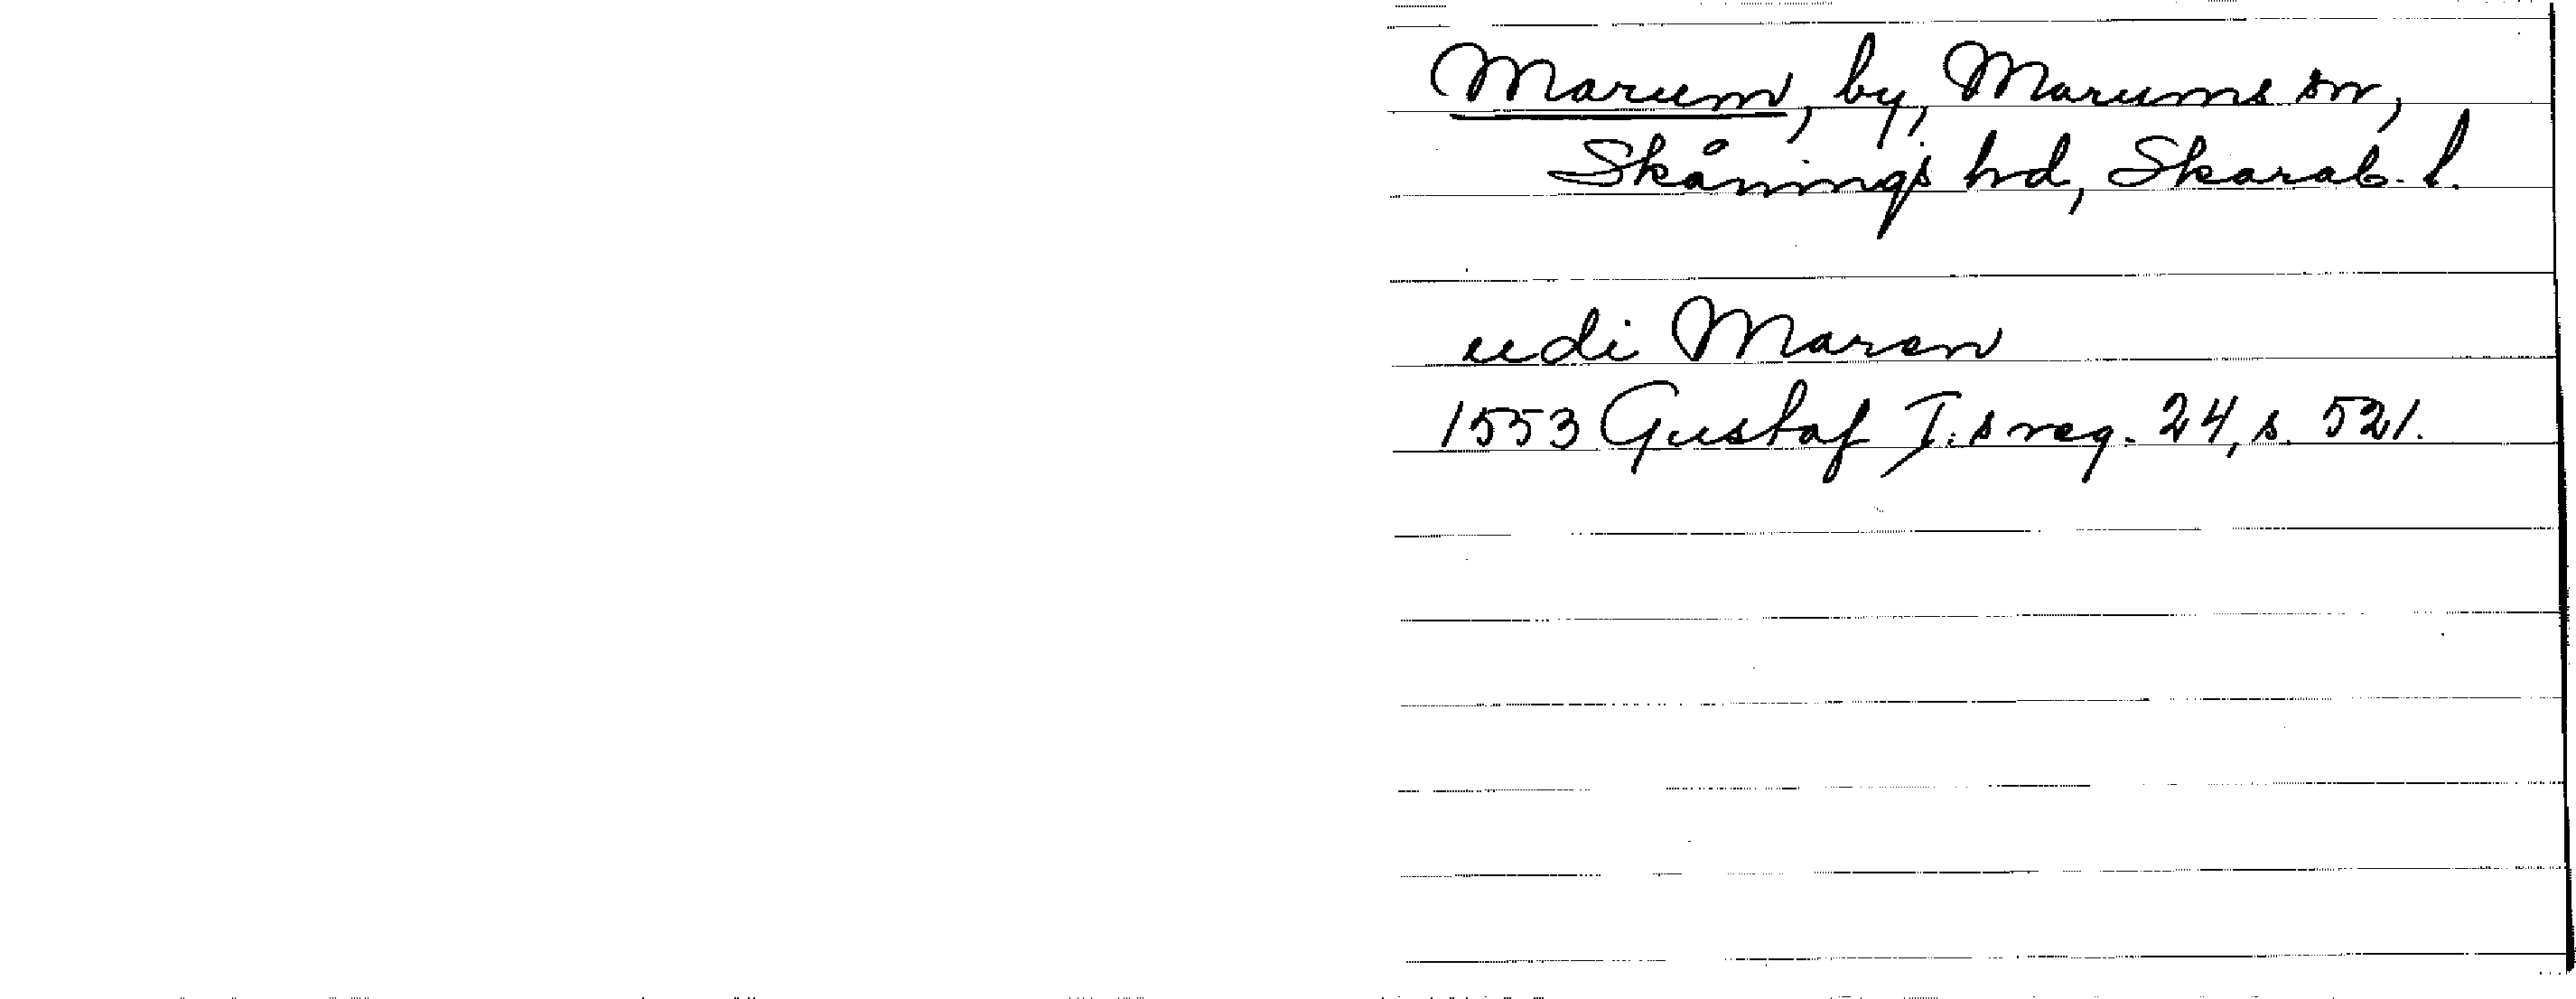 Marum, by, Marums sn,
Skånings hd, Skarab. l.
udi Maren
1553 Gustaf I:s reg. 24, s. 521.